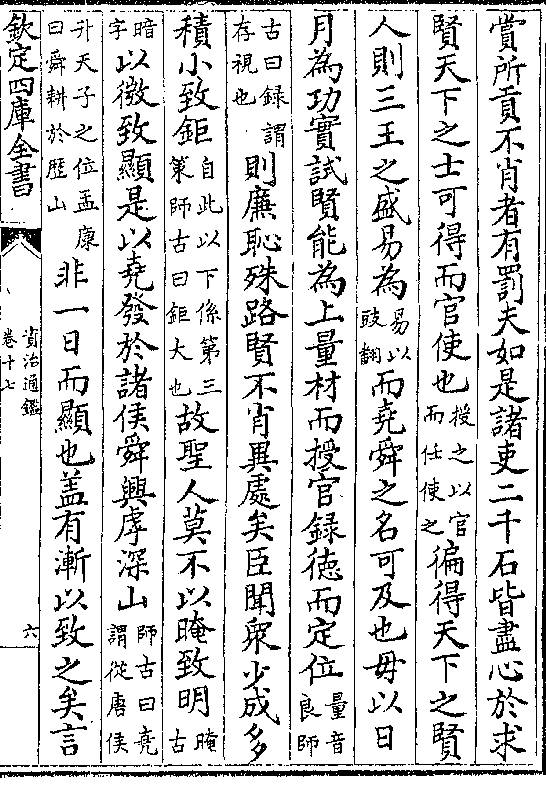 賞所貢不肖者有罰夫如是諸吏二千石皆盡心於求
賢天下之士可得而官使也授之以官而任使之徧得天下之賢
人則三王之盛易為易以豉翻而堯舜之名可及也毋以日
月為功實試賢能為上量材而授官録徳而定位量音良師
古曰録謂存視也則廉恥殊路賢不肖異處矣臣聞衆少成多
積小致鉅自此以下係第三策師古曰鉅大也故聖人莫不以晻致明晻古
暗字以微致顯是以堯發於諸侯舜興虖深山師古曰堯謂從唐侯
升天子之位孟康曰舜耕於歴山非一日而顯也盖有漸以致之矣言
欽定四庫全書
資治通鑑
卷十七
六